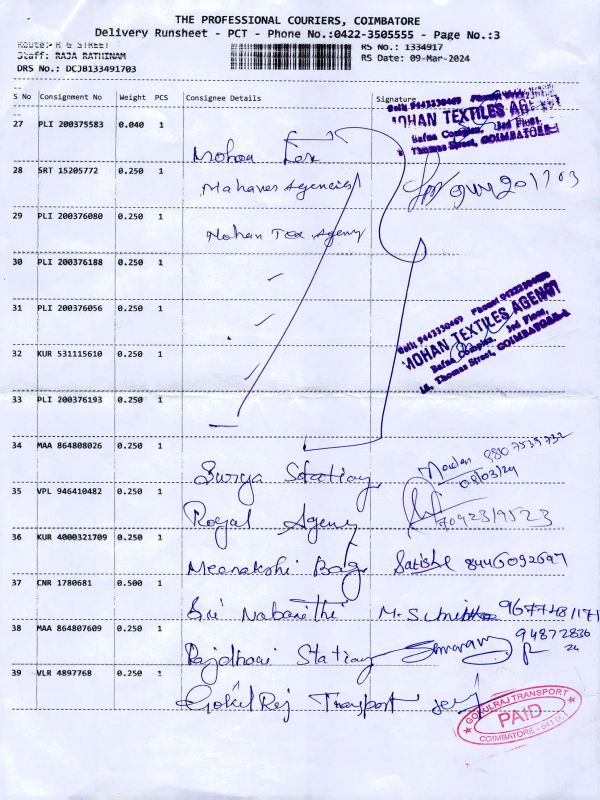 THE PROFESSIONAL COURIERS, COIMBATORE
Delivery Runsheet - PCT - Phone No.:0422-3505555 - Page No.:3
Route:- R G STREET RS No.: 1334917
Staff: RAJA RATHINAM RS Date: 09-Mar-2024
DRS No.: DCJB133491703
S No Consignment No Weight PCS Consignee Details Signature
Cell: 9443330469 Phone:
MOHAN TEXTILES AGENCY
Bafna Complex, 3rd Floor,
Thomas Street, COIMBATORE-1
27 PLI 200375583 0.040 1 Mohan Tex
28 SRT 15205772 0.250 1 Mahaver Agencies
29 PLI 200376080 0.250 1 Mohan Tex Agency
30 PLI 200376188 0.250 1
31 PLI 200376056 0.250 1
Cell: 9443330469 Phone:
MOHAN TEXTILES AGENCY
Bafna Complex, 3rd Floor,
Thomas Street, COIMBATORE-1
32 KUR 531115610 0.250 1
33 PLI 200376193 0.250 1
34 MAA 864808026 0.250 1 Surya Stationary 8807539732
09/03/24
35 VPL 946410482 0.250 1 Royal Agency
36 KUR 4000321709 0.250 1 Meenakshi Bag Satish 8446092697
37 CNR 1780681 0.500 1 Sri Nabanithi
38 MAA 864807609 0.250 1 Rajdhani Stationary
39 VLR 4897768 0.250 1 Gokul Raj Transport
GOKULRAJ TRANSPORT
PAID
COIMBATORE - 641 001